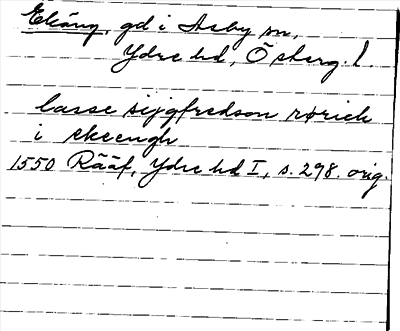 Ekäng, gd i Asby sn,
Ydre hd, Österg. l.
lasse sigfredson rörick
i ekeengh
1550 Rääf, Ydre hd I, s. 298. orig.